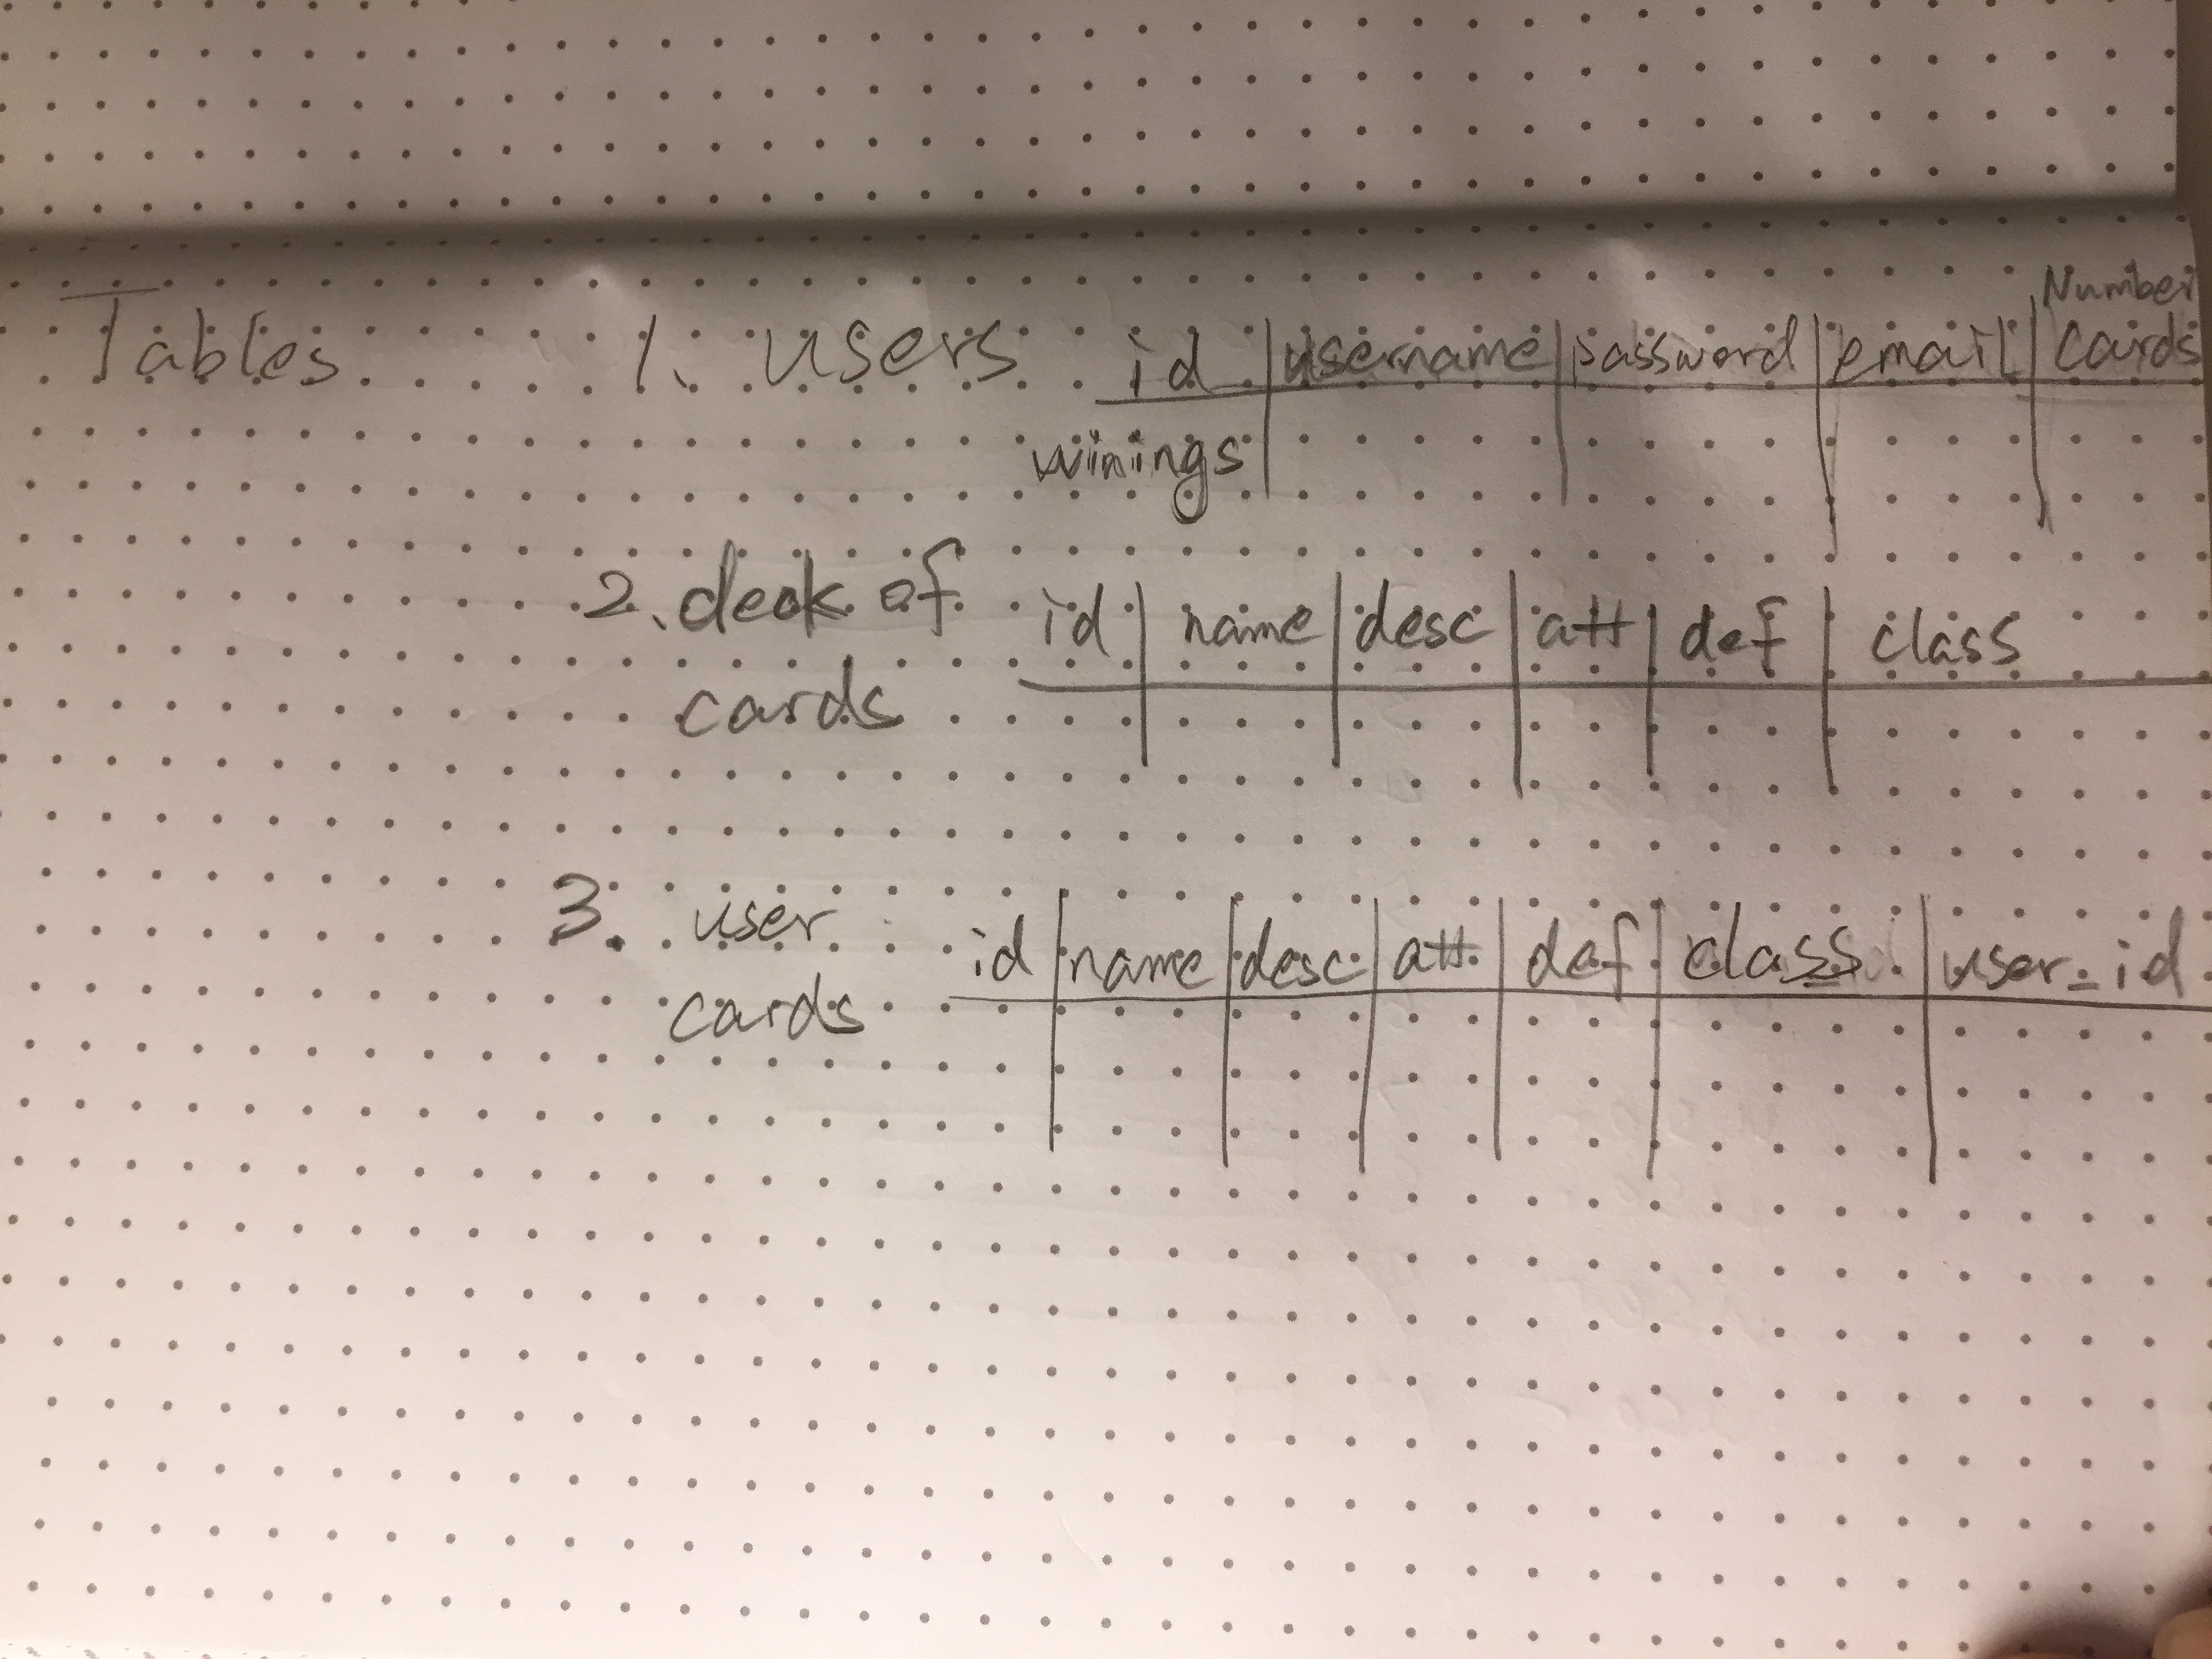 Tables 1. users id username password email Number cards
winings
2. deck of cards id name desc att def class
3. user cards id name desc att def class user_id